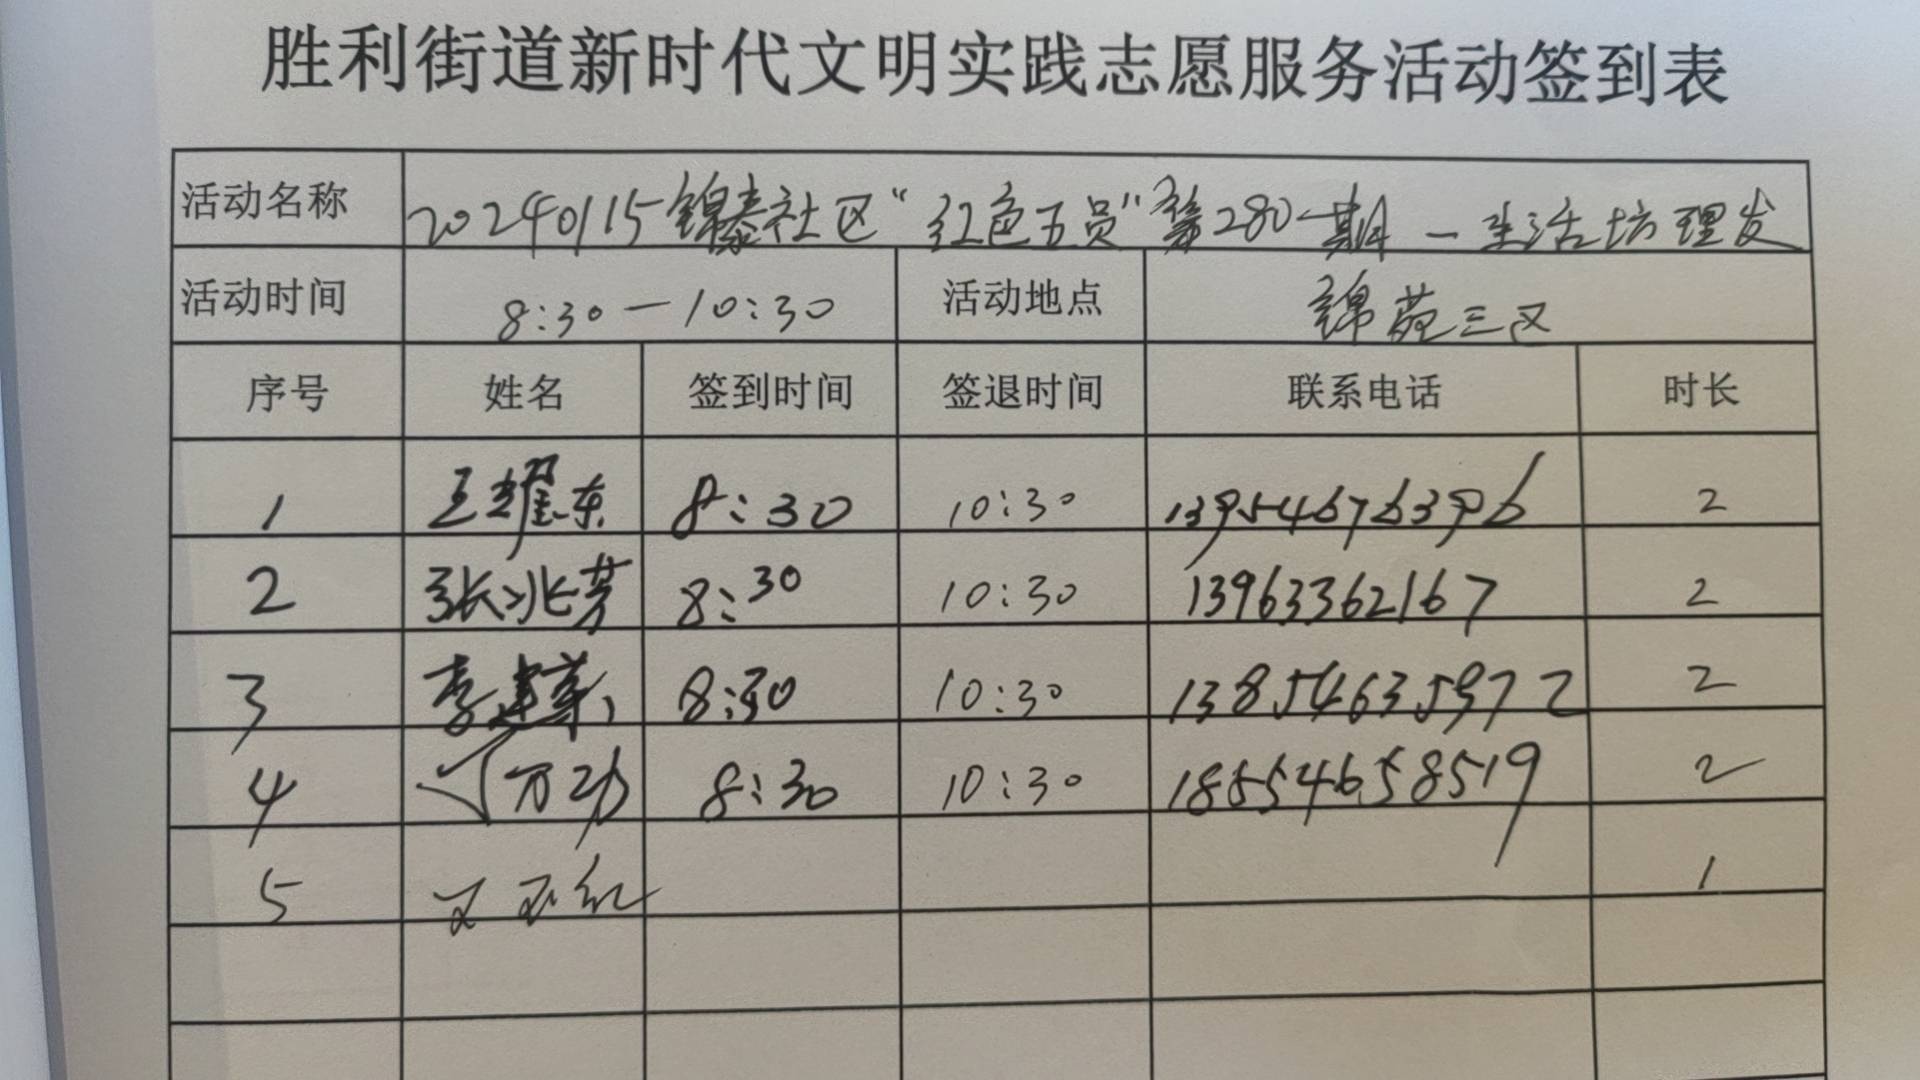 胜利街道新时代文明实践志愿服务活动签到表
活动名称 20240115锦泰社区“红色五员”第280期—生活坊理发
活动时间 8:30—10:30 活动地点 锦苑三区
序号 姓名 签到时间 签退时间 联系电话 时长
1 王耀东 8:30 10:30 13954676396 2
2 张兆芳 8:30 10:30 13963362167 2
3 李建军 8:30 10:30 13854635972 2
4 万功 8:30 10:30 18554658519 2
5 1